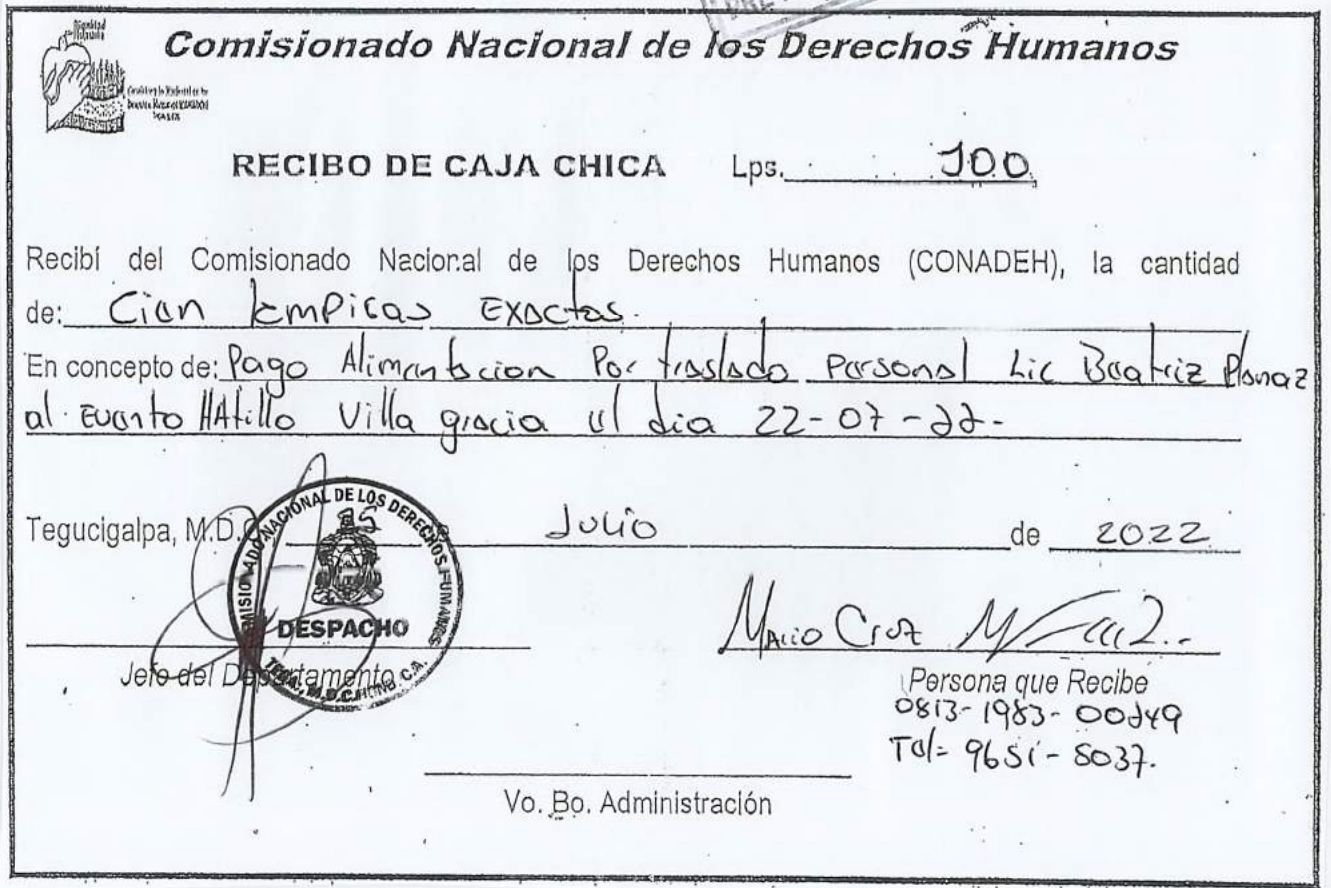 Comisionado Nacional de los Derechos Humanos
RECIBO DE CAJA CHICA Lps. 100
Recibí del Comisionado Nacional de los Derechos Humanos (CONADEH), la cantidad
de: Cien lempiras Exactos.
En concepto de: Pago Alimentacion Por traslado Personal Lic Beatriz
al Evento HAtillo Villa gracia el dia 22-07-22-
Tegucigalpa, M.D.C. Julio de 2022
COMISIONADO NACIONAL DE LOS DERECHOS HUMANOS
DESPACHO
TEGU., M.D.C. HOND. C.A.
Mario Cruz
Jefe del Departamento
Persona que Recibe
0813-1983-00249
Tel= 9651-5037.
Vo. Bo. Administración